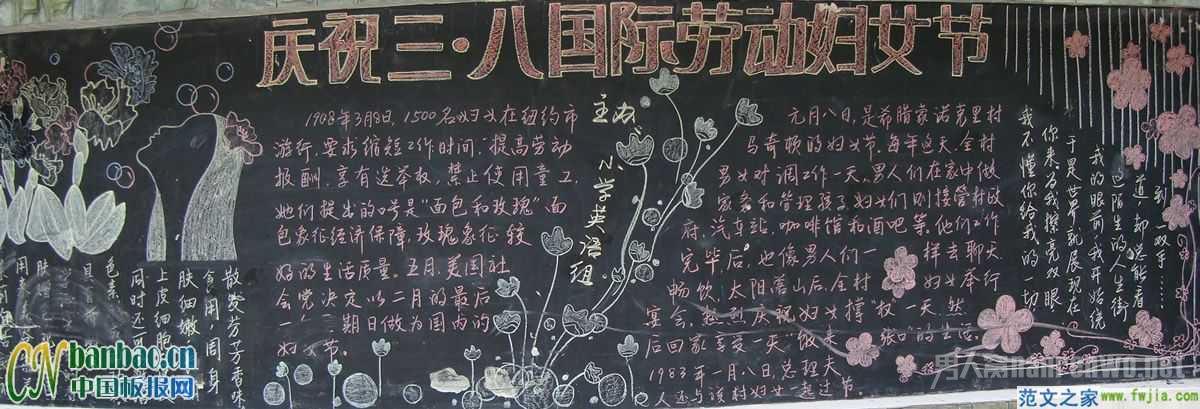 庆祝三·八国际劳动妇女节
1908年3月8日,1500名妇女在纽约市
游行,要求缩短工作时间,提高劳动
报酬,享有选举权,禁止使用童工
她们提出的口号是“面包和玫瑰”,面
包象征经济保障,玫瑰象征较
好的生活质量。五月,美国社
会党决定以二月的最后
一个 期日做为国内的
妇女节。
主办:小学英语组
元月八日,是希腊莫诺克里村
马奇顿的妇女节,每年这天,全村
男女对调工作一天,男人们在家中做
家务和管理孩子,妇女们则接管村政
府、汽车站、咖啡馆和酒吧等。他们工作
完毕后,也像男人们一样去聊天
畅饮,太阳落山后,全村妇女举行
宴会,热烈庆祝妇女撑“权”一天,然
后回家享受一天“饭来张口”的生活。
1983年一月八日,总理夫
人还与该村妇女一起过节。
到一双手……
道,却总能看
这陌生的人生街
我的眼前,我开始绕
于是世界就展现在
你来为我擦亮双眼
我不懂你给我的一切
散发芳芳香味
食用,周身
肤细嫩
上皮细胞
同时还
色素
banbao.cn
中国板报网
范文之家
www.fwjia.com